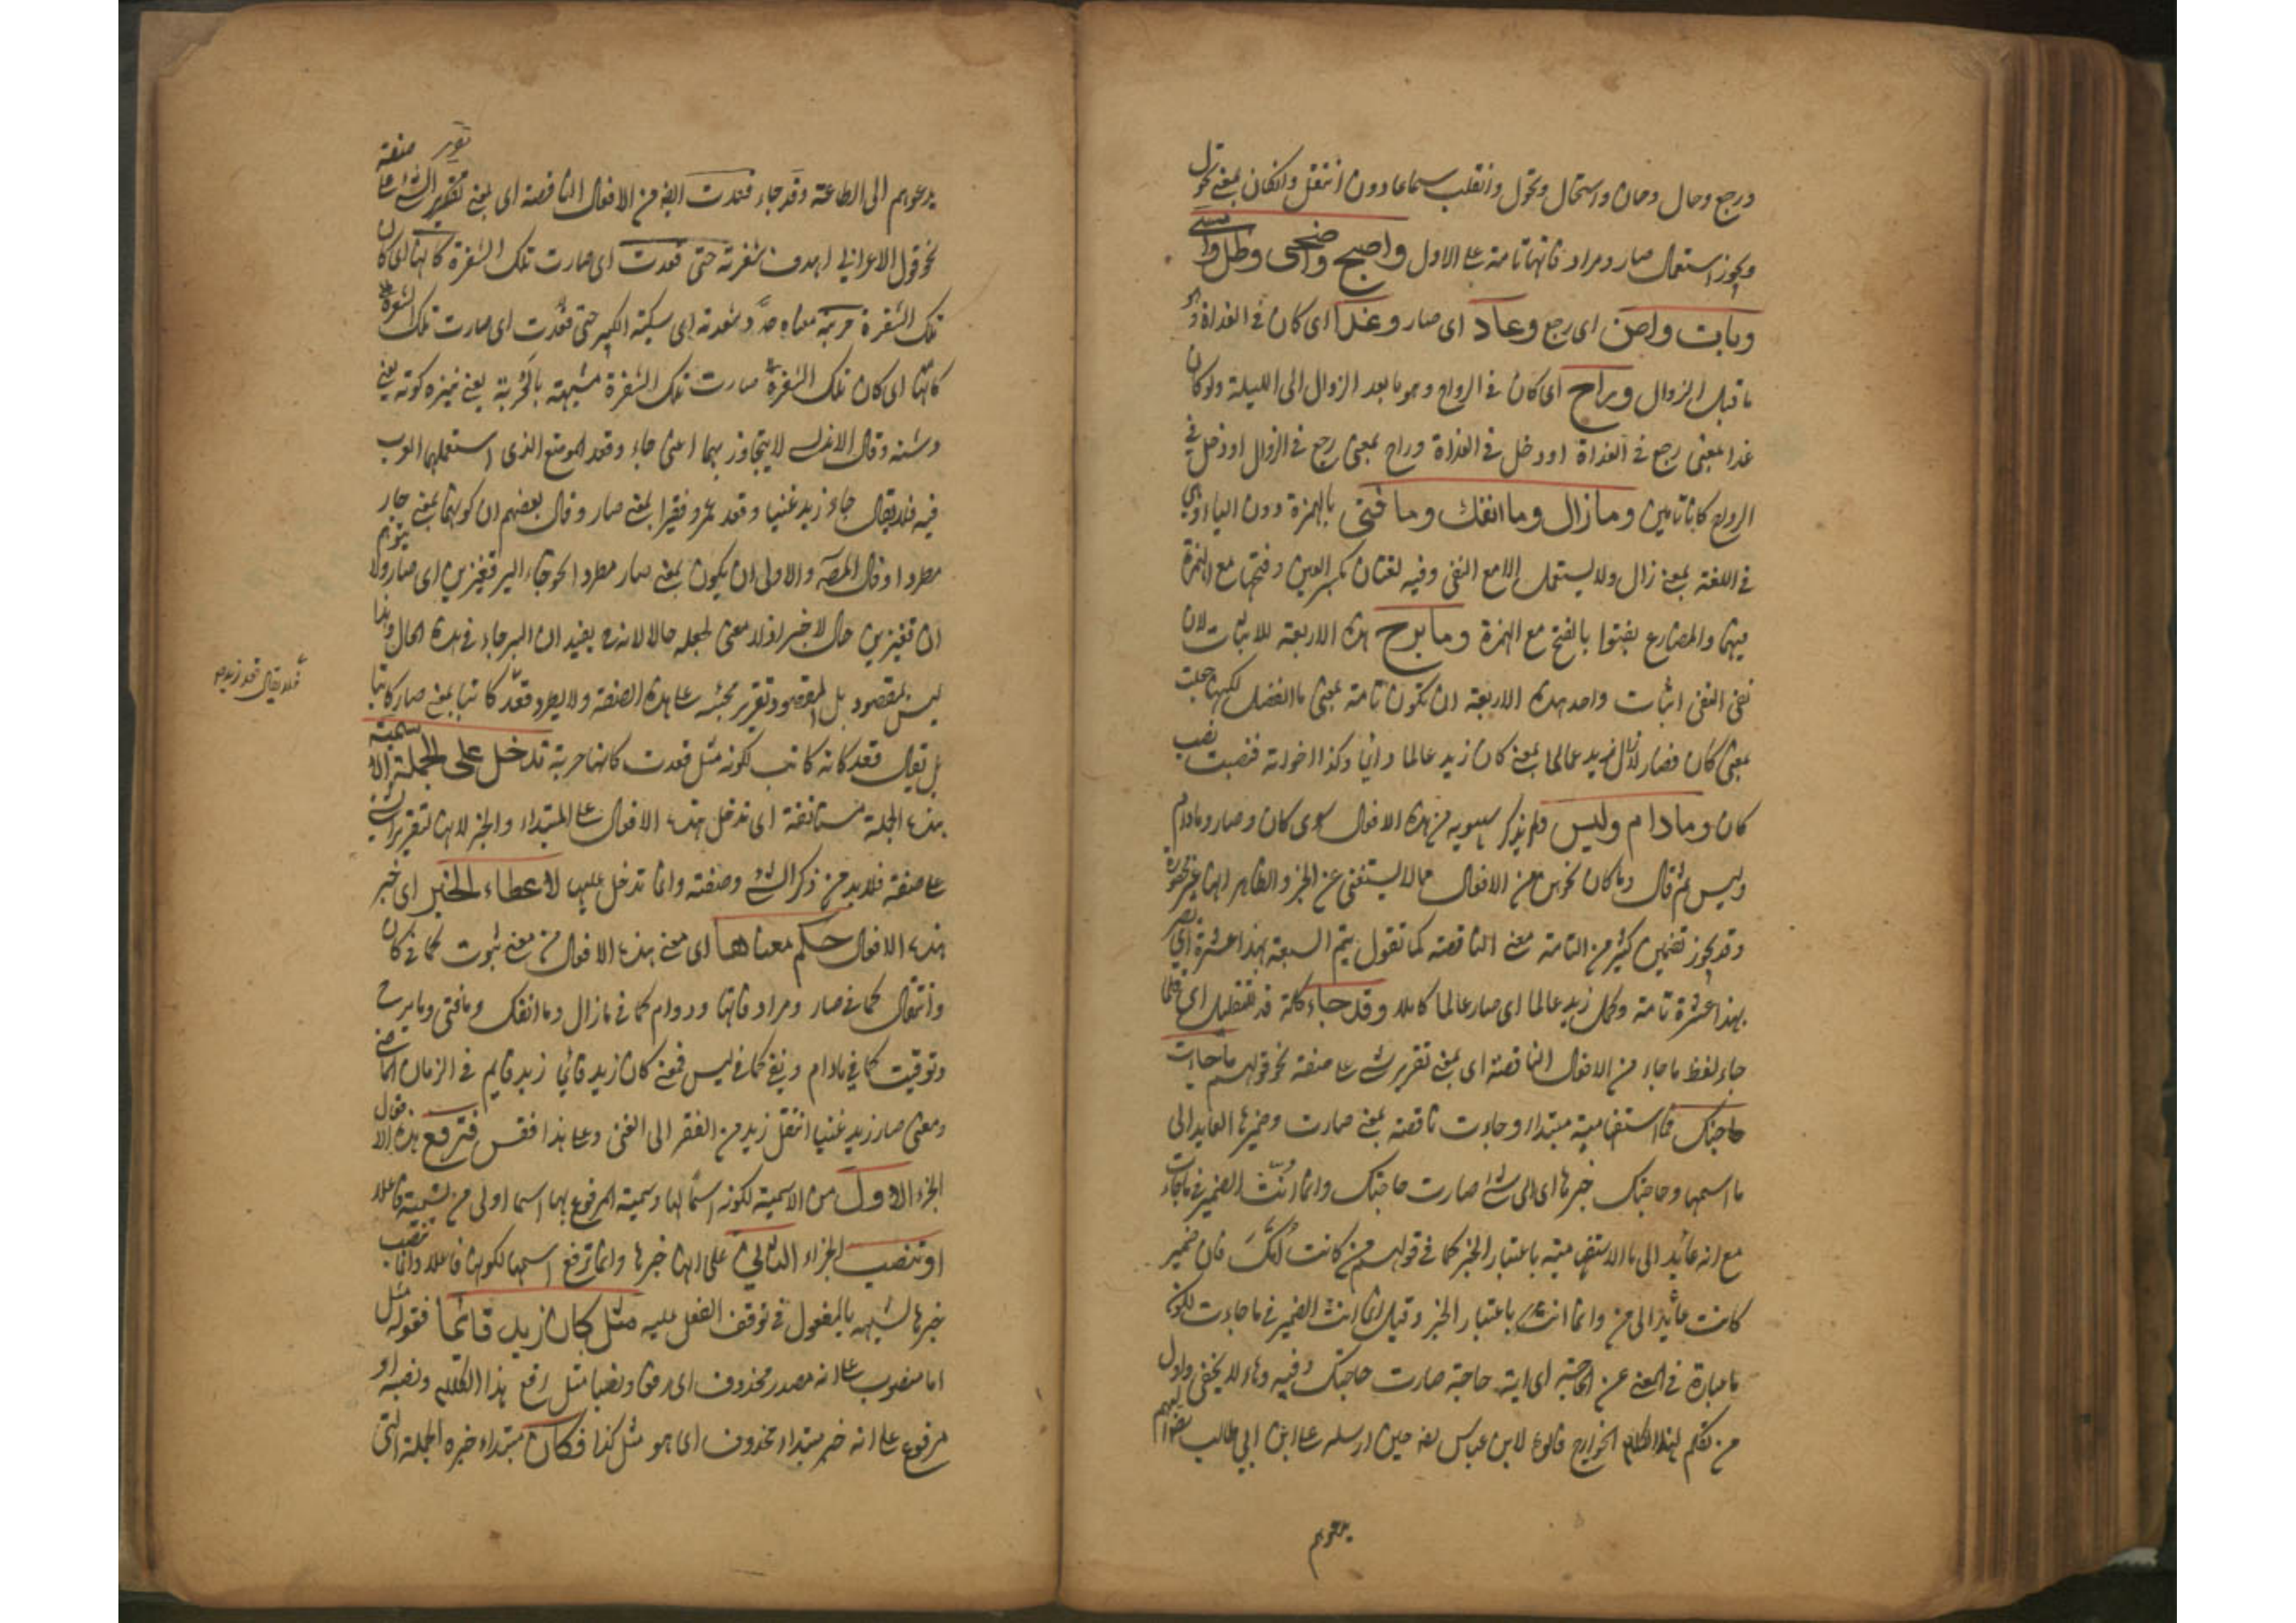 ورجع وحال وحان واستحال وتحول وانقلب سماعا دون انتقل وانكان بمعنى تحول
ويجوز استعمال صار ومراد فاتها تامة على الاول واصبح واضحى وظل وامسى
وبات واض اى رجع وعاد اى صار وغدا اى كان فى الغداة وهو
ما قبل الزوال وراح اى كان فى الرواح وهو ما بعد الزوال الى الليلة ولو كان
غدا بمعنى رجع فى الغداة او دخل فى الغداة وراح بمعنى رجع فى الزوال او دخل فى
الرواح كانا تامين وما زال وما انفك وما فتى بالهمزة دون الياء وهى
فى اللغة بمعنى زال ولا يستعمل الا مع النفى وفيه لغتان بكسر العين وفتحها مع الهمزة
فيهما والمضارع يفتوا بالفتح مع الهمزة وما برح هذه الاربعة للاثبات لان
نفى النفى اثبات واحد هذه الاربعة ان تكون تامة بمعنى ما انفصل لكنها جعلت
بمعنى كان فصار لازال زيد عالما بمعنى كان زيد عالما دائما وكذا اخواته فنصبت نصب
كان وما دام وليس ولم يذكر سيبويه من هذه الافعال سوى كان وصار ومادام
وليس ثم قال وما كان نحوهن من الافعال مما لا يستغنى عن الخبر والظاهر انها غير محصورة
وقد يجوز تضمين كثير من التامة معنى الناقصة كما تقول يتم التسعة بهذا عشرة اى تصير
بهذا عشرة تامة وكمل زيد عالما اى صار عالما كاملا وقد جاء كلمة قد للتقليل اى قلما
جاء لفظ ما جاء من الافعال الناقصة اى بمعنى تقرير شئ على صفة نحو قولهم ما جاءت
حاجتك فما استفهامية مبتداء وجاءت ناقصة بمعنى صارت وضميرها العايد الى
ما اسمها وحاجتك خبرها اى اى شئ صارت حاجتك وانما انث الضمير فى ما جاءت
مع انه عائد الى ما الاستفهامية باعتبار الخبر كما فى قولهم من كانت امك فان ضمير
كانت عائد الى من وانما انث باعتبار الخبر وقيل انما انث الضمير فى ما جاءت لكون
ما عبارة فى المعنى عن الحاجة اى اية حاجة صارت حاجتك وفيه ما لا يخفى واول
من تكلم بهذا الكلام الخوارج قالوه لابن عباس رضه حين ارسله على ابن ابى طالب رضه اليهم
يدعوهم
يدعوهم الى الطاعة وقد جاء قعدت ايضا من الافعال الناقصة اى بمعنى تقرير الشئ على صفة
نحو قول الاعرابى ارهف شفرته حتى قعدت اى صارت تلك الشفرة كانها اى كان
تلك الشفرة حربة معناه حدد شفرته اى سكينه الكبير حتى قعدت اى صارت تلك الشفرة
كانها اى كان تلك الشفرة صارت تلك الشفرة مشبهة بالحربة يعنى نيزه كوته يعنى
دشنه وقال الاندلسى لا يتجاوز بهما اعنى جاء وقعد الموضع الذى استعملهما العرب
فيه فلا يقال جاء زيد غنيا وقعد عمرو فقيرا بمعنى صار وقال بعضهم ان كونهما بمعنى صار
مطردا وقال المصـ والاولى ان يكون بمعنى صار مطردا نحو جاء البر قفيزين اى صار ولا يتوهم
ان قفيزين حال لا خبر اذ لا معنى لجعله حالا لانه يفيد ان البر جاء فى هذه الحال وهذا
ليس بمقصود بل المقصود تقرير مجيئه على هذه الصفة ولا يطرد قعد كاتبا بمعنى صار كاتبا
فلا يقال قعد زيد
بل يقال قعد كانه كاتب لكونه مثل قعدت كانها حربة تدخل على الجملة الاسمية
هذه الجملة مستانفة اى تدخل هذه الافعال على المبتداء والخبر لانها لتقرير الشئ
على صفة فلا بد من ذكر الشئ وصفته وانما تدخل عليها لاعطاء الخبر اى خبر
هذه الافعال حكم معناها اى معنى هذه الافعال من معنى ثبوت كما فى كان
وانتقال كما فى صار ومراد فاتها ودوام كما فى ما زال وما انفك وما فتى وما برح
وتوقيت كما فى مادام ونفى كما فى ليس فمعنى كان زيد قائما زيد قايم فى الزمان الماضى
ومعنى صار زيد غنيا انتقل زيد من الفقر الى الغنى وعلى هذا فقس فترفع هذه الافعال
الجزء الاول من الاسمية لكونه اسما لها وتسمية المرفوع بها اسما اولى من تسميته فاعلا
او تنصب الجزاء الثانى على انها خبرها وانما ترفع اسمها لكونها فاعلا وانما تنصب
خبرها لشبهه بالمفعول فى توقف الفعل عليه مثل كان زيد قائما فقوله مثل
اما منصوب على انه مصدر محذوف اى رفعا ونصبا مثل رفع هذا الكلام ونصبه او
مرفوع على انه خبر مبتداء محذوف اى هو مثل كذا فكان مبتداء خبره الجملة التى